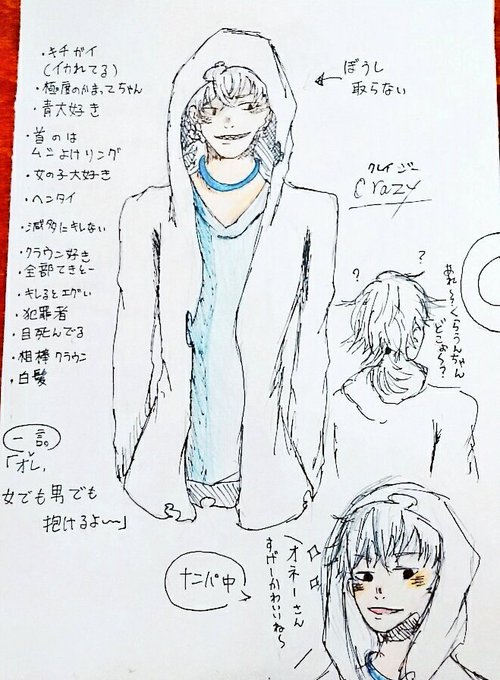 ・キチガイ
(イカれてる)
・極度のかまってちゃん
・青大好き
・首のは
ムシよけリング
・女の子大好き
・ヘンタイ
・滅多にキレない
・クラウン好き
・全部てきとー
・キレるとエグい
・犯罪者
・目死んでる
・相棒クラウン
・白髪
一言。
「オレ、
女でも男でも
抱けるよ〜」
ぼうし
取らない
クレイジー
Crazy
?
?
あれ〜?くらうんちゃん
どこぉ〜?
ナンパ中
オネーさん
すげーかわいいね〜